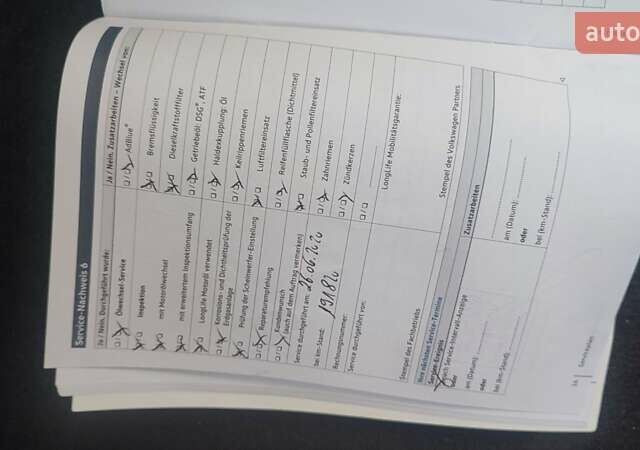 auto
Service-Nachweis 6
Ja / Nein. Durchgeführt wurde:
Ölwechsel-Service
Inspektion
mit Motorölwechsel
mit erweitertem Inspektionsumfang
LongLife Motoröl verwendet
Korrosions- und Dichtheitsprüfung der
Erdgasanlage
Prüfung der Scheinwerfer-Einstellung
Reparaturempfehlung
Kundenwunsch
(auch auf dem Auftrag vermerken)
Service durchgeführt am: 26.06.2020
bei km-Stand: 191820
Rechnungsnummer:
Service durchgeführt von:
Stempel des Fachbetriebs
Ja / Nein. Zusatzarbeiten – Wechsel von:
AdBlue®
Bremsflüssigkeit
Dieselkraftstofffilter
Getriebeöl: DSG®, ATF
Haldexkupplung: Öl
Keilrippenriemen
Luftfiltereinsatz
Reifenfüllflasche (Dichtmittel)
Staub- und Pollenfiltereinsatz
Zahnriemen
Zündkerzen
LongLife Mobilitätsgarantie:
Stempel des Volkswagen Partners
Ihre nächsten Service-Termine
Service-Ereignis
nach Service-Intervall-Anzeige
oder
am (Datum):
oder
bei (km-Stand):
Zusatzarbeiten
am (Datum):
oder
bei (km-Stand):
Serviceplan